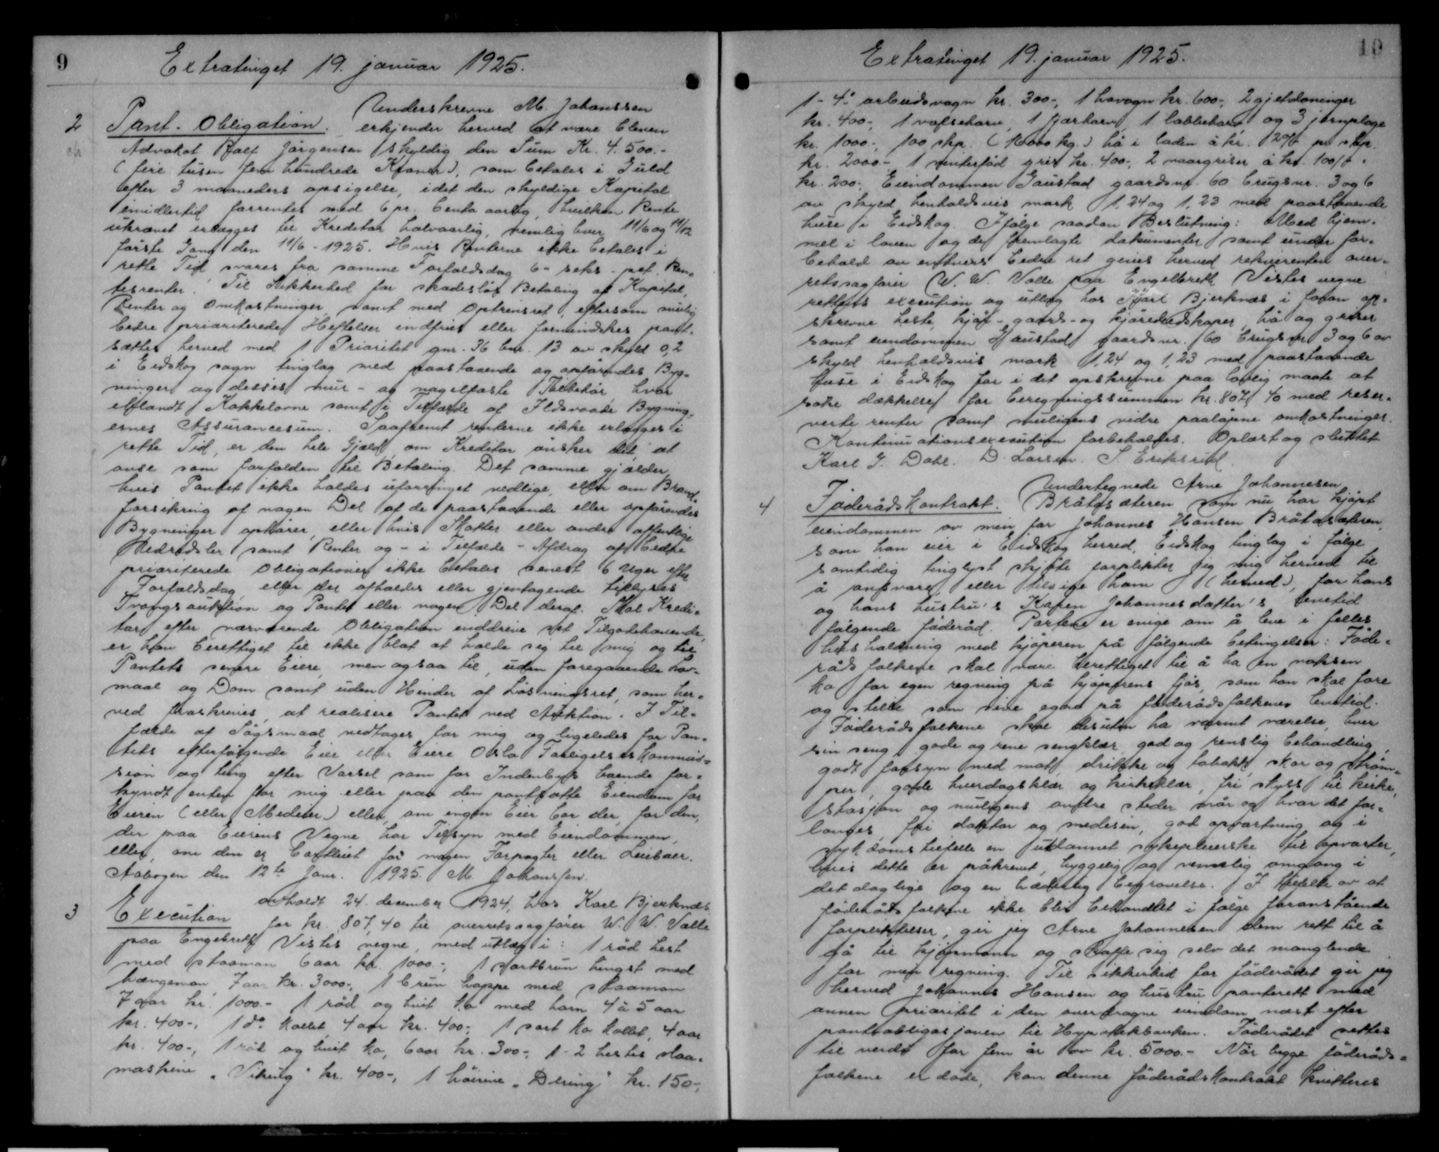 9
Extratinget 19. januar 1925.
2
Pant-Obligation. Underskrevne M. Johanssen
erkjender herved at være bleven
Advokat Rolf Jörgensen skyldig den Sum Kr. 4.500.-
(fire tusen fem hundrede Kroner), som betales i Guld
efter 3 maaneders opsigelse, idet den skyldige Kapital
imidlertid forrentes med 6 pr. Cento aarlig, hvilken Rente
ukrævet erlægges til Kreditor halvaarlig, nemlig hver 11/6 og 11/12
förste Gang den 11/6-1925. Hvis Renterne ikke betales i
rette Tid svares fra samme Forfaldsdag 6- seks- pct. Ren-
tesrenter. Til Sikkerhed for skadeslös Betaling af Kapital,
Renter og Omkostninger samt med Optrinsret, eftersom mulig
bedre prioriterede Heftelser indfries eller formindskes pant-
sættes herved med Prioritet gnr. 36 bnr. 13 av skyld 0,2
i Eidskog sogn tinglag med paastaaende og opförendes Byg-
ninger og dessis mur- og nagelfaste Tilbehör, hvor
iblandt Kakkelovne samt i Tilfælde af Ildsvaade Bygning-
ernes Assurancesum. Saafremt renterne ikke erlægges i
rette Tid, er den hele Gjæld, om Kreditor önsker det, at
anse som forfalden til Betaling. Det samme gjælder,
hvis Pantet ikke holdes uforringet vedlige, eller om Brand-
forsikring af nogen Del af de paastaaende eller opförendes
Bygninger ophörer, eller hvis Skatter eller andre offentlige
Hedrædsler samt Renter og - i Tilfælde - Afdrag af bedre
prioriterede Obligationer ikke betales senest 6 Uger efter
Forfaldsdag, eller der afholdes eller gjentagende tillyses
Tvangsauktion og Pantet eller nogen Del deraf. Skal Kredi-
tor efter nærværende Obligation inddrive det Tilgodehavende,
er han berettiget til ikke blot at holde sig til mig og til
Pantets senere Eiere, men ogsaa til, uden foregaaende Lov-
maal og Dom samt uden Hender af Lösningsret, som her-
ved fraskrives, at realisere Pantet ved Auktion. I Til-
fælde af Sögsmaal vedtages for mig og ligeledes for Pan-
tets efterfölgende Eier eller Eiere Oslo Forligelses kommis-
sion og ting efter Varsel som for Indenbys boende for-
kyndt enten for mig eller paa den pantsatte Eiendom for
Eieren (eller Medeier) eller, om ingen Eier bor der, for den,
der paa Eierens Vegne har Tilsyn med Eiendommen,
eller, om den er bortleiet for nogen Forpagter eller Leiboer.
Aabogen den 12te Janr. 1925 M. Johanssen.
3
Execution avholdt 24. december 1924, hos Karl Bjerknæs
for kr. 807,40 til overretssagförer W. W. Valle
paa Engebrett Vestes vegne, med utlæg i: 1 röd hest
med staaman 6 aar kr. 1000-, 1 sortbrun hingst med
hængeman, 7 aar kr. 3000-, 1 brun hoppe med staaman
7 aar kr. 1000.- 1 röd og hvit ko med horn 4 à 5 aar
kr. 400-, 1 do. kollet 4 aar kr. 400-, 1 sort ko kollet, 4 aar
kr. 400-, 1 röd og hvit ko, 6 aar kr. 300-, 1-2 hestes slaa-
maskine "Viking" kr. 400-, 1 höirive "Dering" kr. 150-,
10
Extratinget 19. januar 1925.
1 - 4" arbeidsvogn kr. 300-, 1 höivogn kr. 600-, 2 gjetdoninger
kr. 400-, 1 valseharv, 1 fjærharv 1 labbeharv og 3 jernploge
kr. 1000-, 100 skp. (16000 kg.) hö i laden à kr. 20/ pr. skp.
kr. 2000- 1 vinterföd gris kr. 400-, 2 vaargriser à kr. 100/-
kr. 200- Eiendommen Gaustad gaardsnr. 60 brugsnr. 3 og 6
av skyld henholdsvis mark 1,24 og 1,23 med paastaaende
huse i Eidskog. Ifölge saadan Beslutning: Med hjem-
mel i loven og de fremlagte dokumenter samt under for-
behold av enhvers bedre ret gives herved rekvirenten over-
retssagförer W. W. Valle paa Engelbrett Vestes vegne
rettens execution og utlæg hos Karl Bjerknæs i foran op-
skrevne heste, kjör- gaards- og kjöreredskaper, hö og griser
samt eiendommen Gaustad gaardsnr. 60 brugsnr. 3 og 6 av
skyld henholdsvis mark 1,24 og 1,23 med paastaaende
huse i Eidskog for i det opskrevne paa lovlig maate at
söke dækkelse for beregningssummen kr. 807,40 med reser-
verte renter samt muligens videre paalöpne omkostninger.
Kontinuationsexecution forbeholdes. Oplæst og sluttet
Karl J. Dahl. D. Larsen. S. Eriksrud
4
Föderådskontrakt. Undertegnede Arne Johannesen
Bråtasæteren som nu har kjöpt
eiendommen av min far Johannes Hansen Bråtasæteren,
som han eier i Eidskog herred, Eidskog tinglag i fölge
samtidig tinglyst skjöte forplikter jeg mig herved til
å ansvare eller tilsige ham (herved), for hans
og hans hustru's Karen Johannesdatter's levetid
fölgende föderåd. Partene er enige om å leve i felles
husholdning med kjöperen på fölgende betingelser: Föde-
rådsfolkene skal være berettiget til å ha en voksen
ko for egen regning på kjöperens fjös, som han skal fore
og stelle som sine egne på föderådsfolkenes levetid.
Föderådsfolkene skal dessuten ha varmt værelse, hver
sin seng, gode og rene sengklær, god og renslig behandling,
godt forsyn med mat, drikke og tobakk, skor og ström-
per, gode hverdagsklær og kirkeklær, fri skyss til kirke,
stasjon og muligens andre steder når og hvor det for-
langes, fri doktor og medisin, god opvartning og i
sykdomstilfelle en utdannet sykepleierske til opvarter,
hvis dette er påkrevet, hyggelig og vennlig omgang i
det daglige og en hæderlig begravelse. I tilfelle av at
föderådsfolkene ikke blir behandlet i fölge foranstående
forpliktelser, gir jeg Arne Johannesen dem rett til å
gå til kjöpmann og skaffe sig selv det manglende
for min regning. Til sikkerhed for föderådet gir jeg
herved Johannes Hansen og hustru panterett med
annen prioritet i den overdragne eiendom næst efter
pantobligasjonen til Hypotekbanken. Föderådet settes
til verdi for fem år av kr. 5000.- Når begge föderåds-
folkene er döde, kan denne föderådskontrakt kvitteres